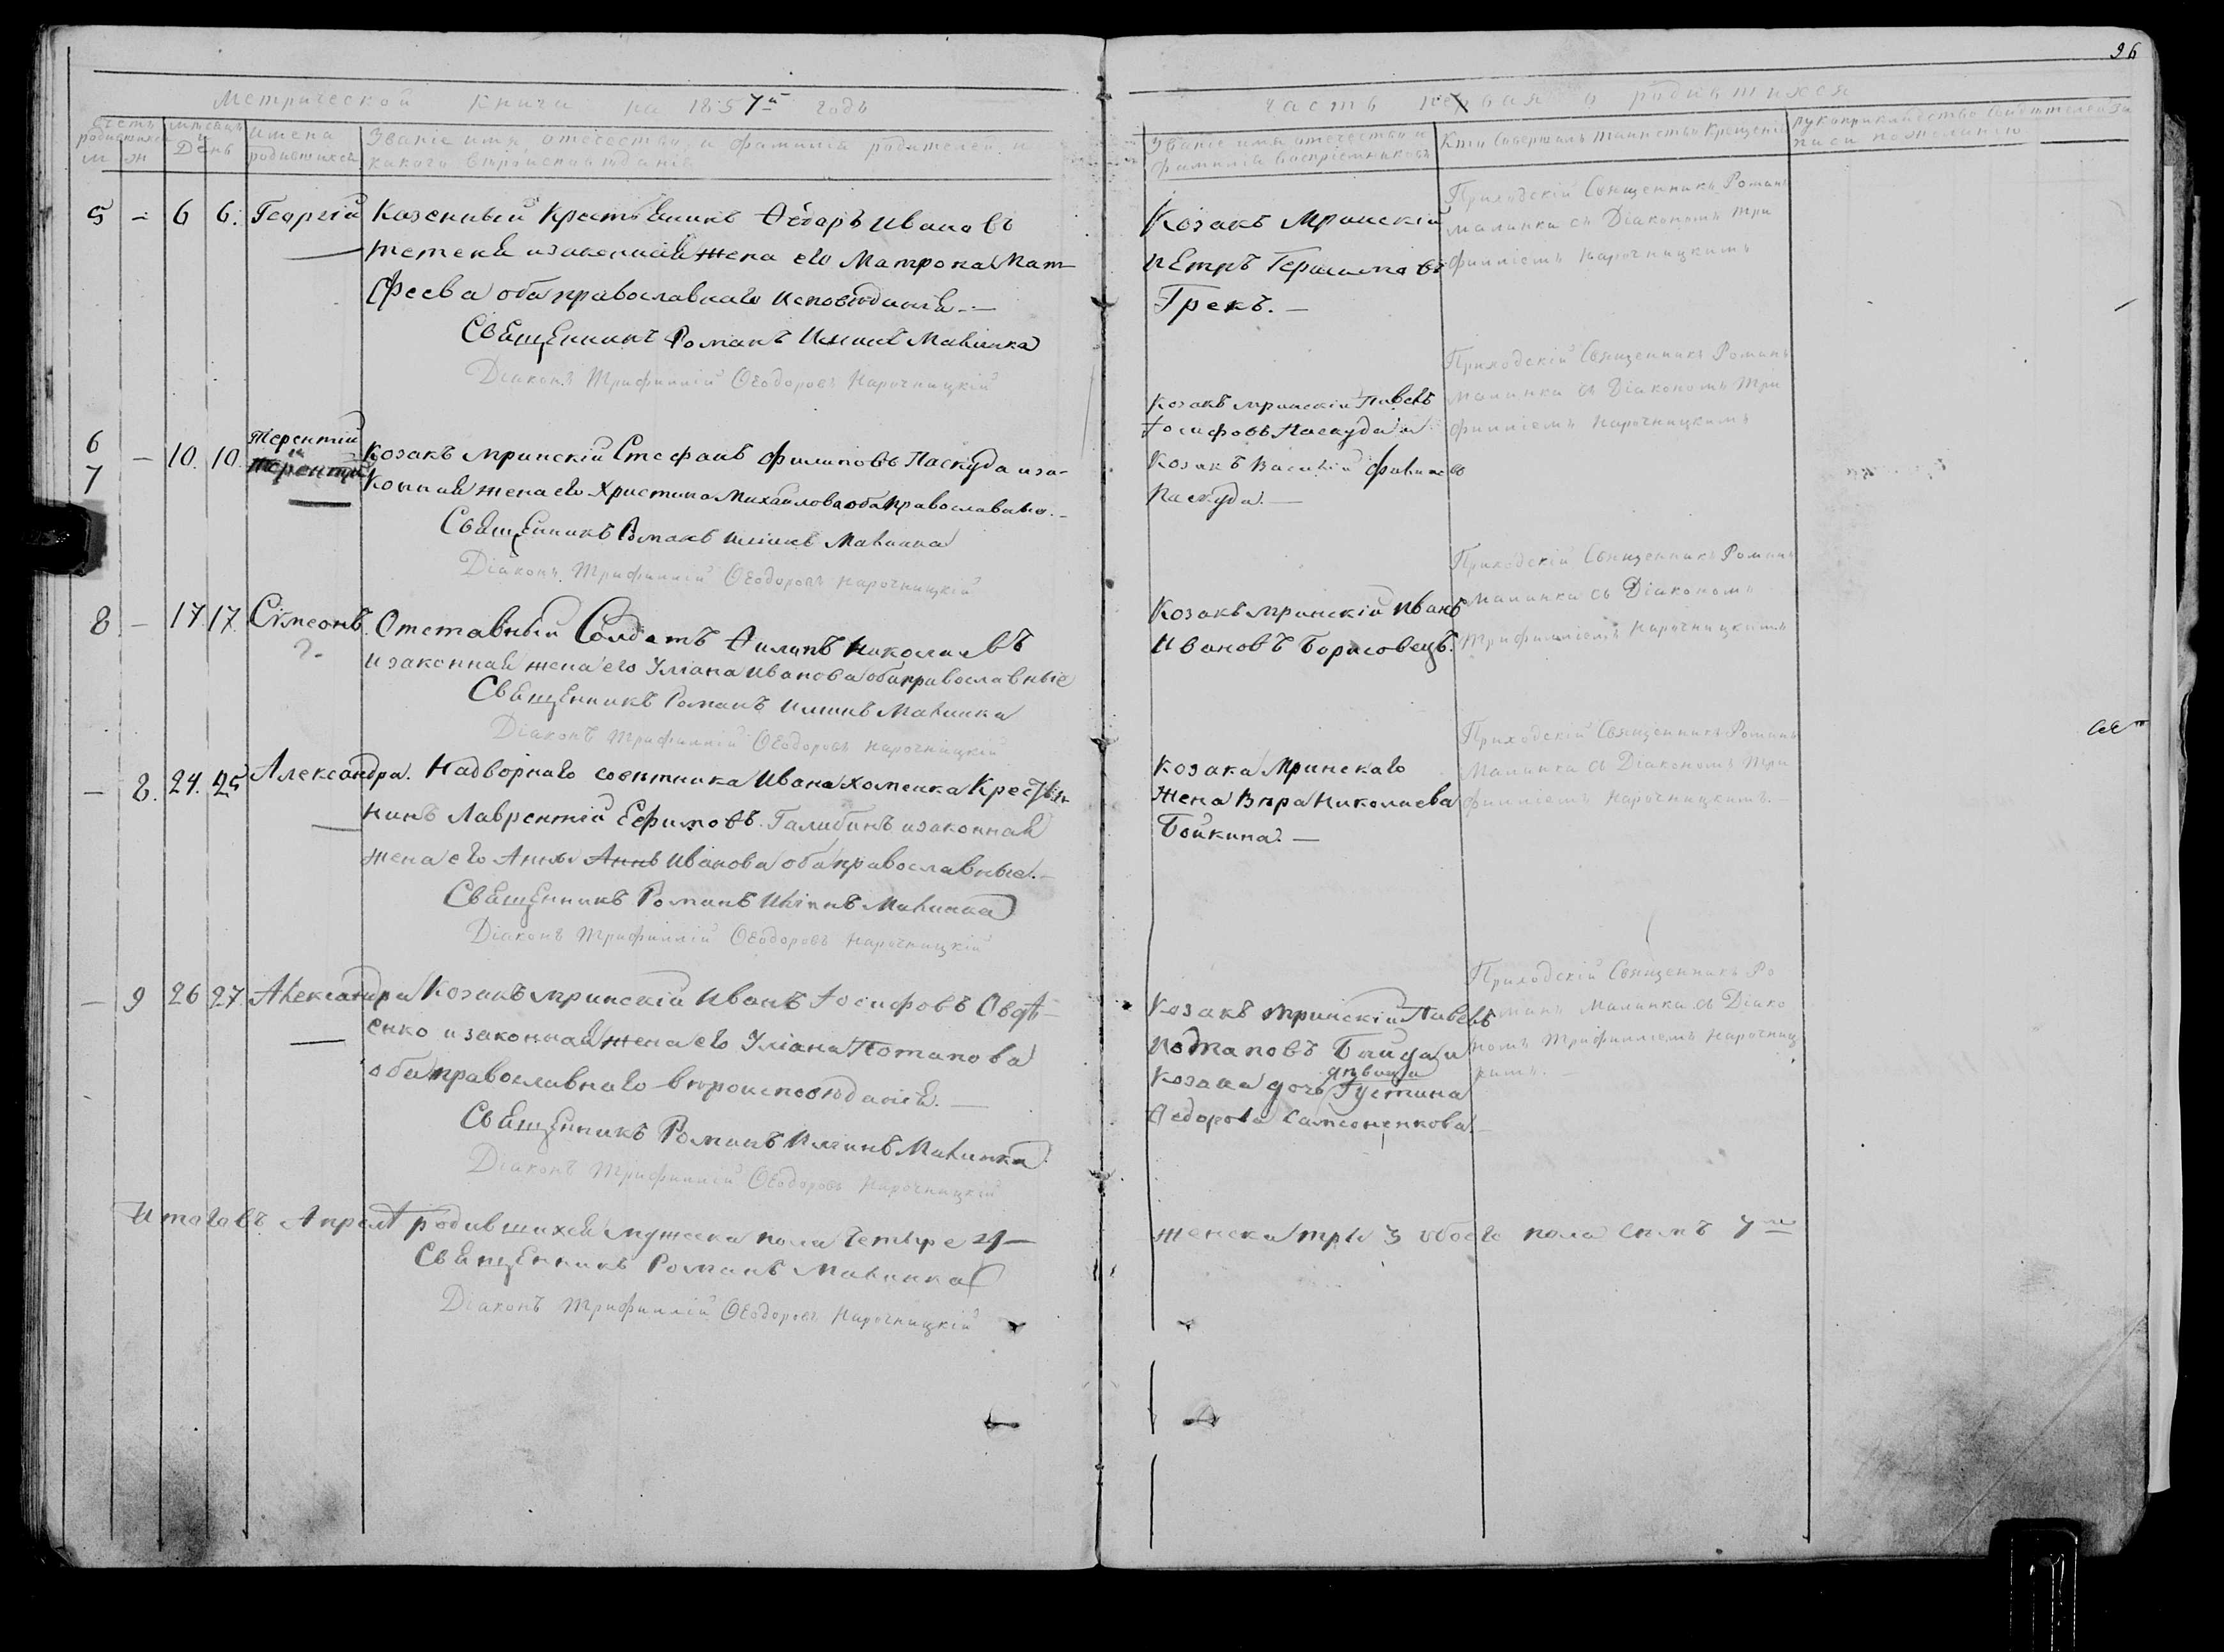 96
Метрической книги на 1857й годъ
Часть первая о родившихся
Счетъ родившихся
м ж
мѣсяцъ и День
Имена родившихся
Званіе имя, отечество, и фамилія родителей, и
какого вѣроисповѣданія
Званіе имя отечество и
фамилія воспріемниковъ
Кто совершалъ таинство Крещенія
Рукоприкладство свидѣтелей за
писи по желанію
5 – 6 6. Георгій
Казенный Крестьянинъ Ѳедоръ Ивановъ
Тетеня и законная жена его Матрона Мат
феева оба православнаго исповѣданія. –
Священникъ Романъ Илiинъ Малинка
Діаконъ Трифиллій Ѳеодоровъ Нарочницкій
Козакъ Мринскій
Петръ Герасимовъ
Грекъ. –
Приходскій Священникъ Романъ
Малинка съ Діакономъ Три
филліемъ Нарочницкимъ
6
7 – 10. 10. Терентій
и
Терентій
Козакъ мринскій Стефанъ Филиповъ Паскуда и за-
конная жена его Христина Михайлова оба православные. –
Священникъ Романъ Илiинъ Малинка
Діаконъ Трифиллій Ѳеодоровъ Нарочницкій
Козакъ мринскій Павелъ
Іосифовъ Паскуда и
Козакъ Василій Филиповъ
Паскуда. –
Приходскій Священникъ Романъ
Малинка съ Діакономъ Три
филліемъ Нарочницкимъ
8 – 17 17. Сімеонъ.
Отставный Солдатъ Филипъ Николаевъ
и законная жена его Уліана Иванова оба православные
Священникъ Романъ Илiинъ Малинка
Діаконъ Трифиллій Ѳеодоровъ Нарочницкій
Козакъ мринскій Иванъ
Ивановъ Борисовецъ.
Приходскій Священникъ Романъ
Малинка съ Діакономъ
Трифилліемъ Нарочницкимъ
– 8. 24. 25 Александра.
Надворнаго советника Ивана Хоменка Крестья
нинъ Лаврентій Ефимовъ Галибинъ и законная
жена его Анна Аннъ Иванова оба православные. –
Священникъ Романъ Илiинъ Малинка
Діаконъ Трифиллій Ѳеодоровъ Нарочницкій
Козака Мринскаго
Жена Вѣра Николаева
Бойкина. –
Приходскій Священникъ Романъ
Малинка съ Діакономъ Три
филліемъ Нарочницкимъ. –
– 9 26 27. Александра
Козакъ мринскій Иванъ Іосифовъ Овдѣ
енко и законная жена его Уліана Потапова
оба православнаго вѣроисповѣданія. –
Священникъ Романъ Илiинъ Малинка
Діаконъ Трифиллій Ѳеодоровъ Нарочницкій
Козакъ мринскій Павелъ
Потаповъ Байда и
Козака дочь дѣвица Густина
Ѳедорова Самсоненкова. –
Приходскій Священникъ Ро
манъ Малинка съ Діако
номъ Трифилліемъ Нарочниц
кимъ. –
Итого въ Апрелѣ родившихся мужеска пола четыре 4 –
женска три 3 обоего пола семъ 7
Священникъ Романъ Малинка
Діаконъ Трифиллій Ѳеодоровъ Нарочницкій